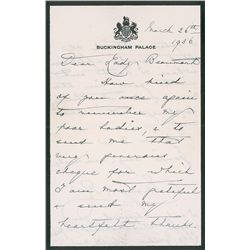 BUCKINGHAM PALACE
March 26th
1936
Dear Lady Beaumont
How kind
of you once again
to remember my
poor ladies, & to
send me that
very generous
cheque for which
I am most grateful
& send my
heartfelt thanks.